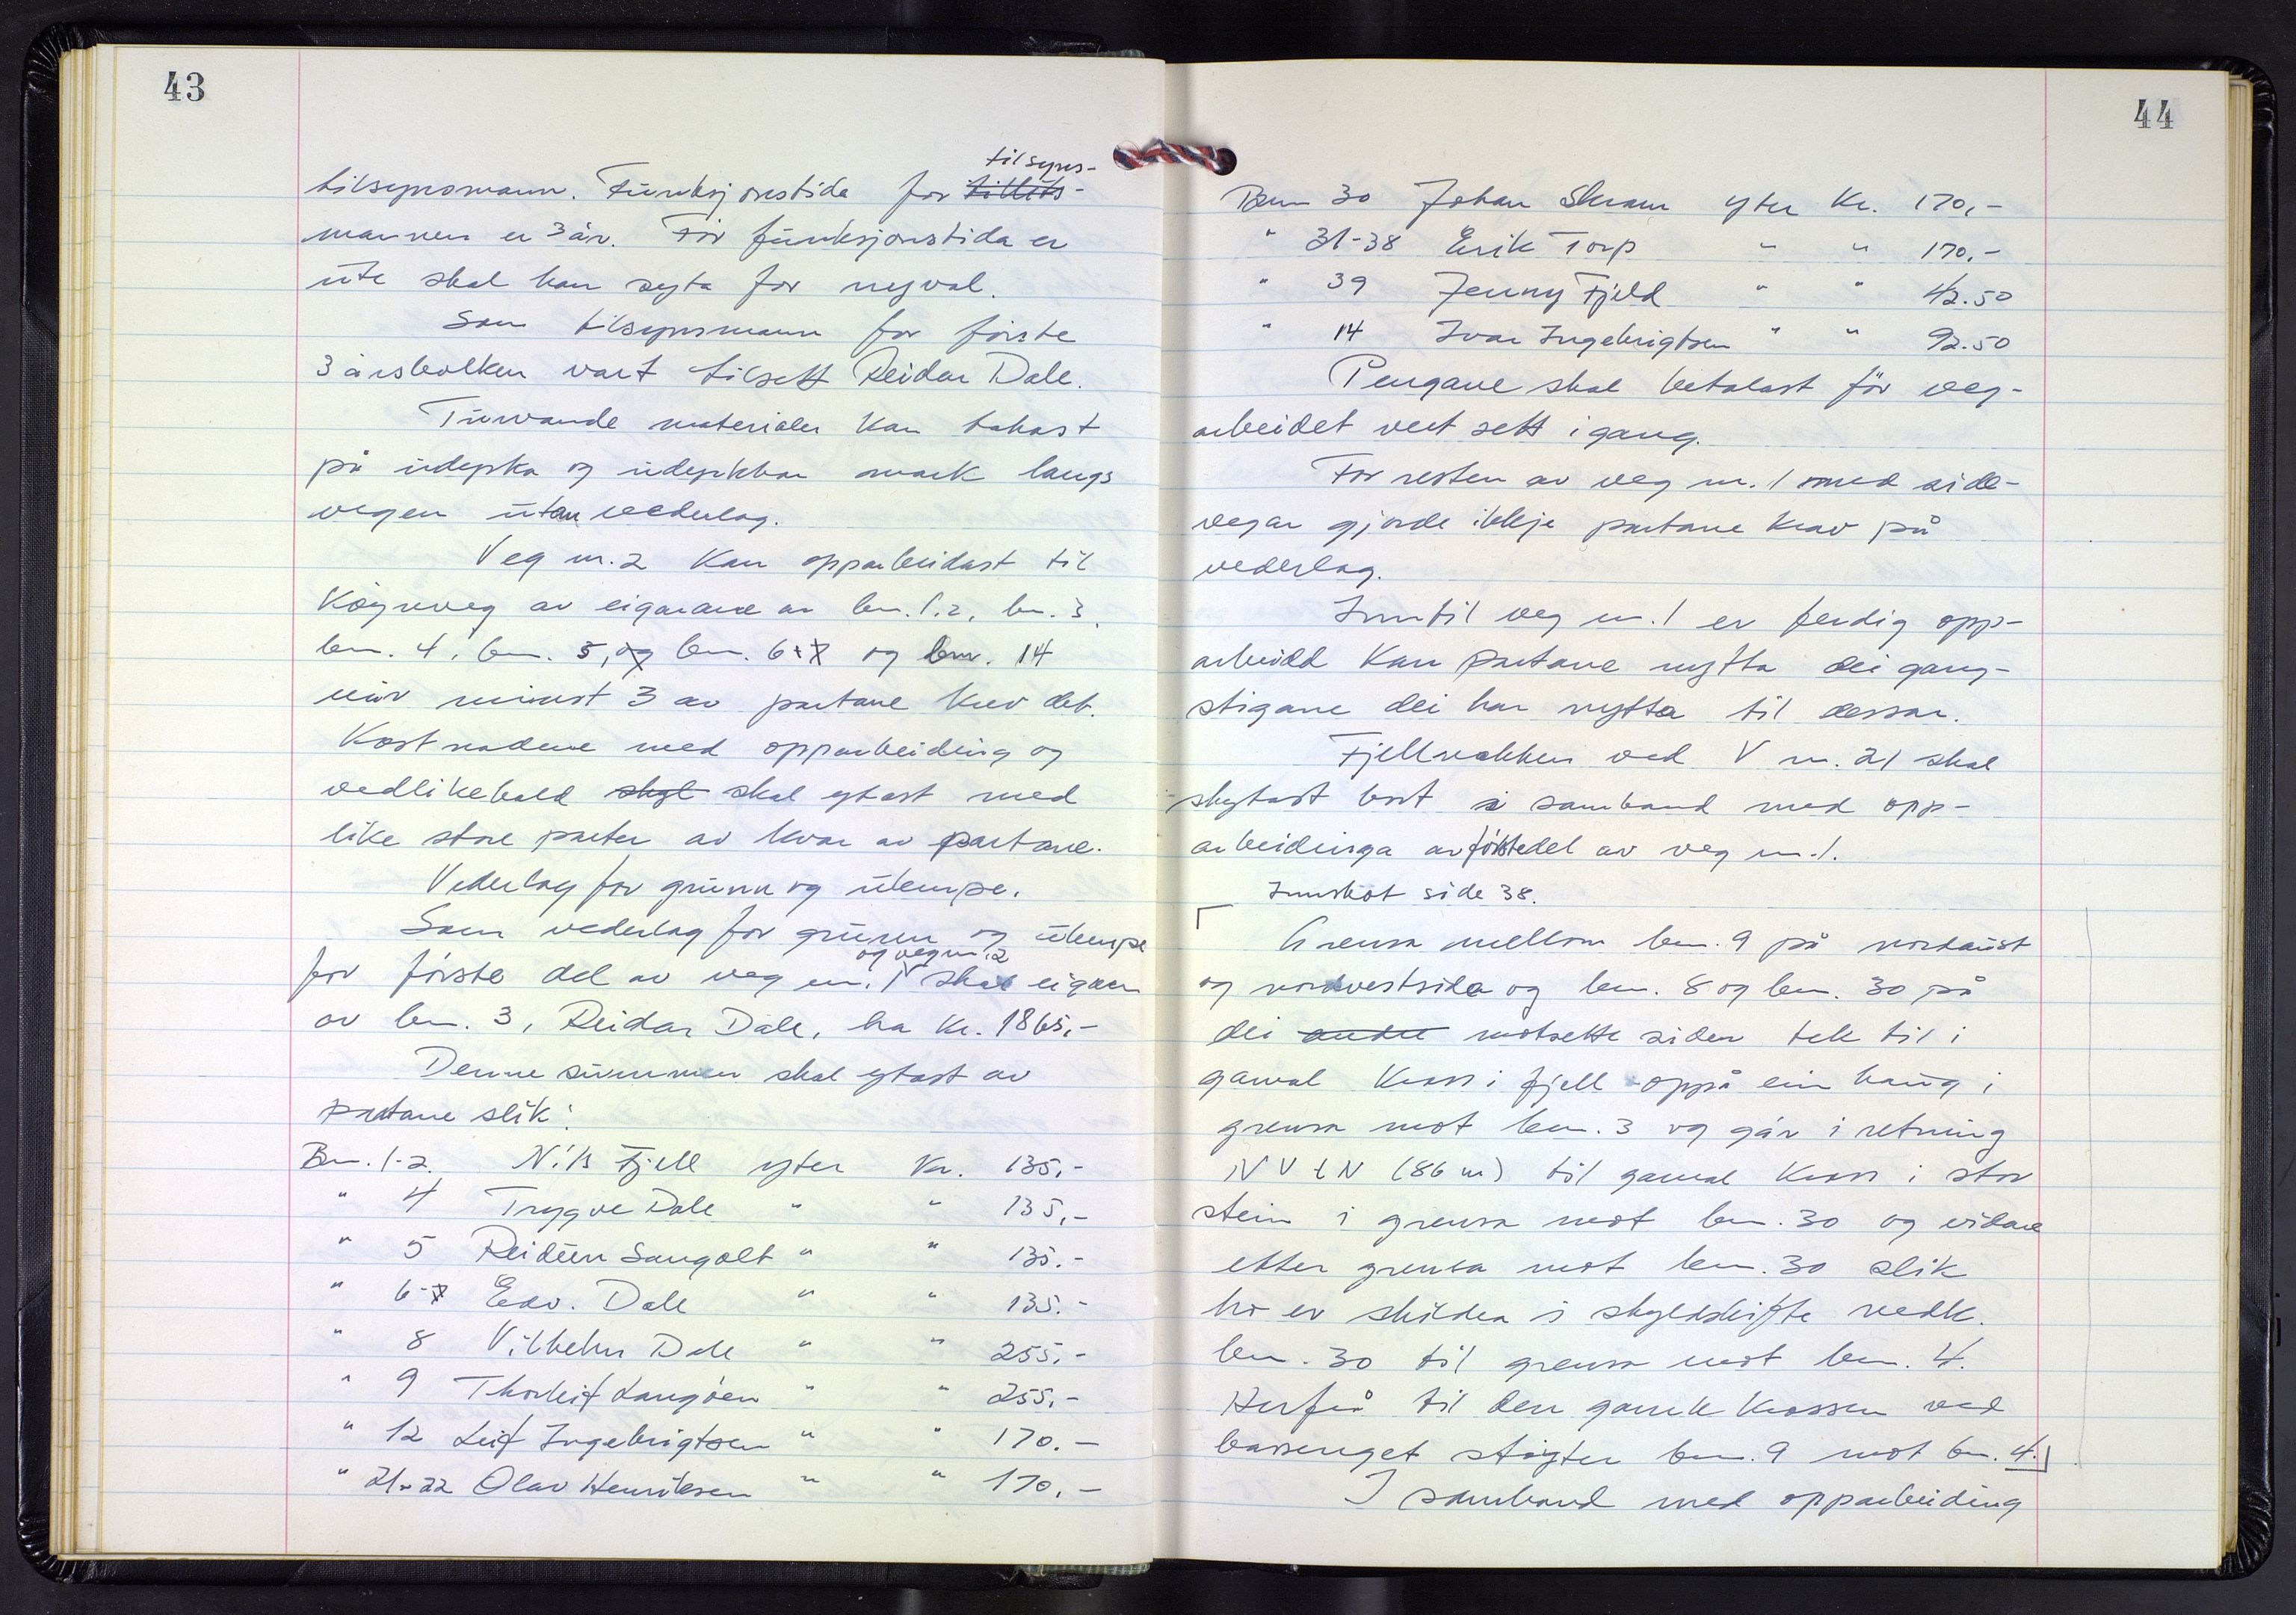 43
tilsyns-
tilsynsmann. Funksjonstida for tillits-
mannen er 3 år. Før funksjonstida er
ute skal han syta for nyval.
Som tilsynsmann for første
3 årsbolken vart tilsett Reidar Dale.
Turvande materialer kan takast
på udyrka og udyrkbar mark langs
vegen utan vederlag.
Veg nr. 2 kan opparbeidast til
køyreveg av eigarane av bnr. 1.2, bnr. 3,
bnr. 4, bnr. 5, og bnr. 6+7 og bnr. 14
når minst 3 av partane krev det.
Kostnadene med opparbeiding og
vedlikehald skyl skal ytast med
like store parter av kvar av partane.
Vederlag for grunn og ulempe.
Som vederlag for grunn og ulempe
og veg nr. 2
for første del av veg nr. 1 skal eigaren
av bnr. 3, Reidar Dale, ha kr. 1865,-
Denne summen skal ytast av
partane slik:
Bnr. 1-2. Nils Fjell yter Kr. 135,-
" 4 Trygve Dale " " 135,-
" 5 Reidun Sangolt " " 135.-
" 6-7 Edv. Dale " " 135.-
" 8 Vilhelm Dale " " 255,-
" 9 Thorleif Langøen " " 255,-
" 12 Leif Ingebrigtsen " " 170.-
" 21-22 Olav Henriksen " " 170,-
44
Bnr 30 Johan Skram yter Kr. 170,-
" 31-38 Erik Torp " " 170,-
" 39 Jenny Fjeld " " 42.50
" 14 Ivar Ingebrigtsen " " 92.50
Pengane skal betalast før veg-
arbeidet vert sett i gang.
For resten av veg nr. 1 med side-
vegar gjorde ikkje partane krav på
vederlag.
Inntil veg nr. 1 er ferdig opp-
arbeidd kan partane nytta dei gang-
stigane dei har nytta til dessar.
Fjellnakken ved V nr. 21 skal
skytast bort i samband med opp-
arbeidinga av første del av veg nr. 1.
Innskot side 38.
Grensa mellom bnr. 9 på nordaust
og nordvestsida og bnr. 8 og bnr. 30 på
dei andre motsette sider tek til i
gamal kross i fjell oppå ein haug i
grensa mot bnr. 3 og går i retning
NVtN (86 m) til gamal kross i stor
stein i grensa mot bnr. 30 og vidare
etter grensa mot bnr. 30 slik
ho er skildra i skyldskifte vedk.
bnr. 30 til grensa mot bnr. 4.
Herfrå til den gamle krossen ved
bassenget støyter bnr. 9 mot bnr. 4.
I samband med opparbeiding